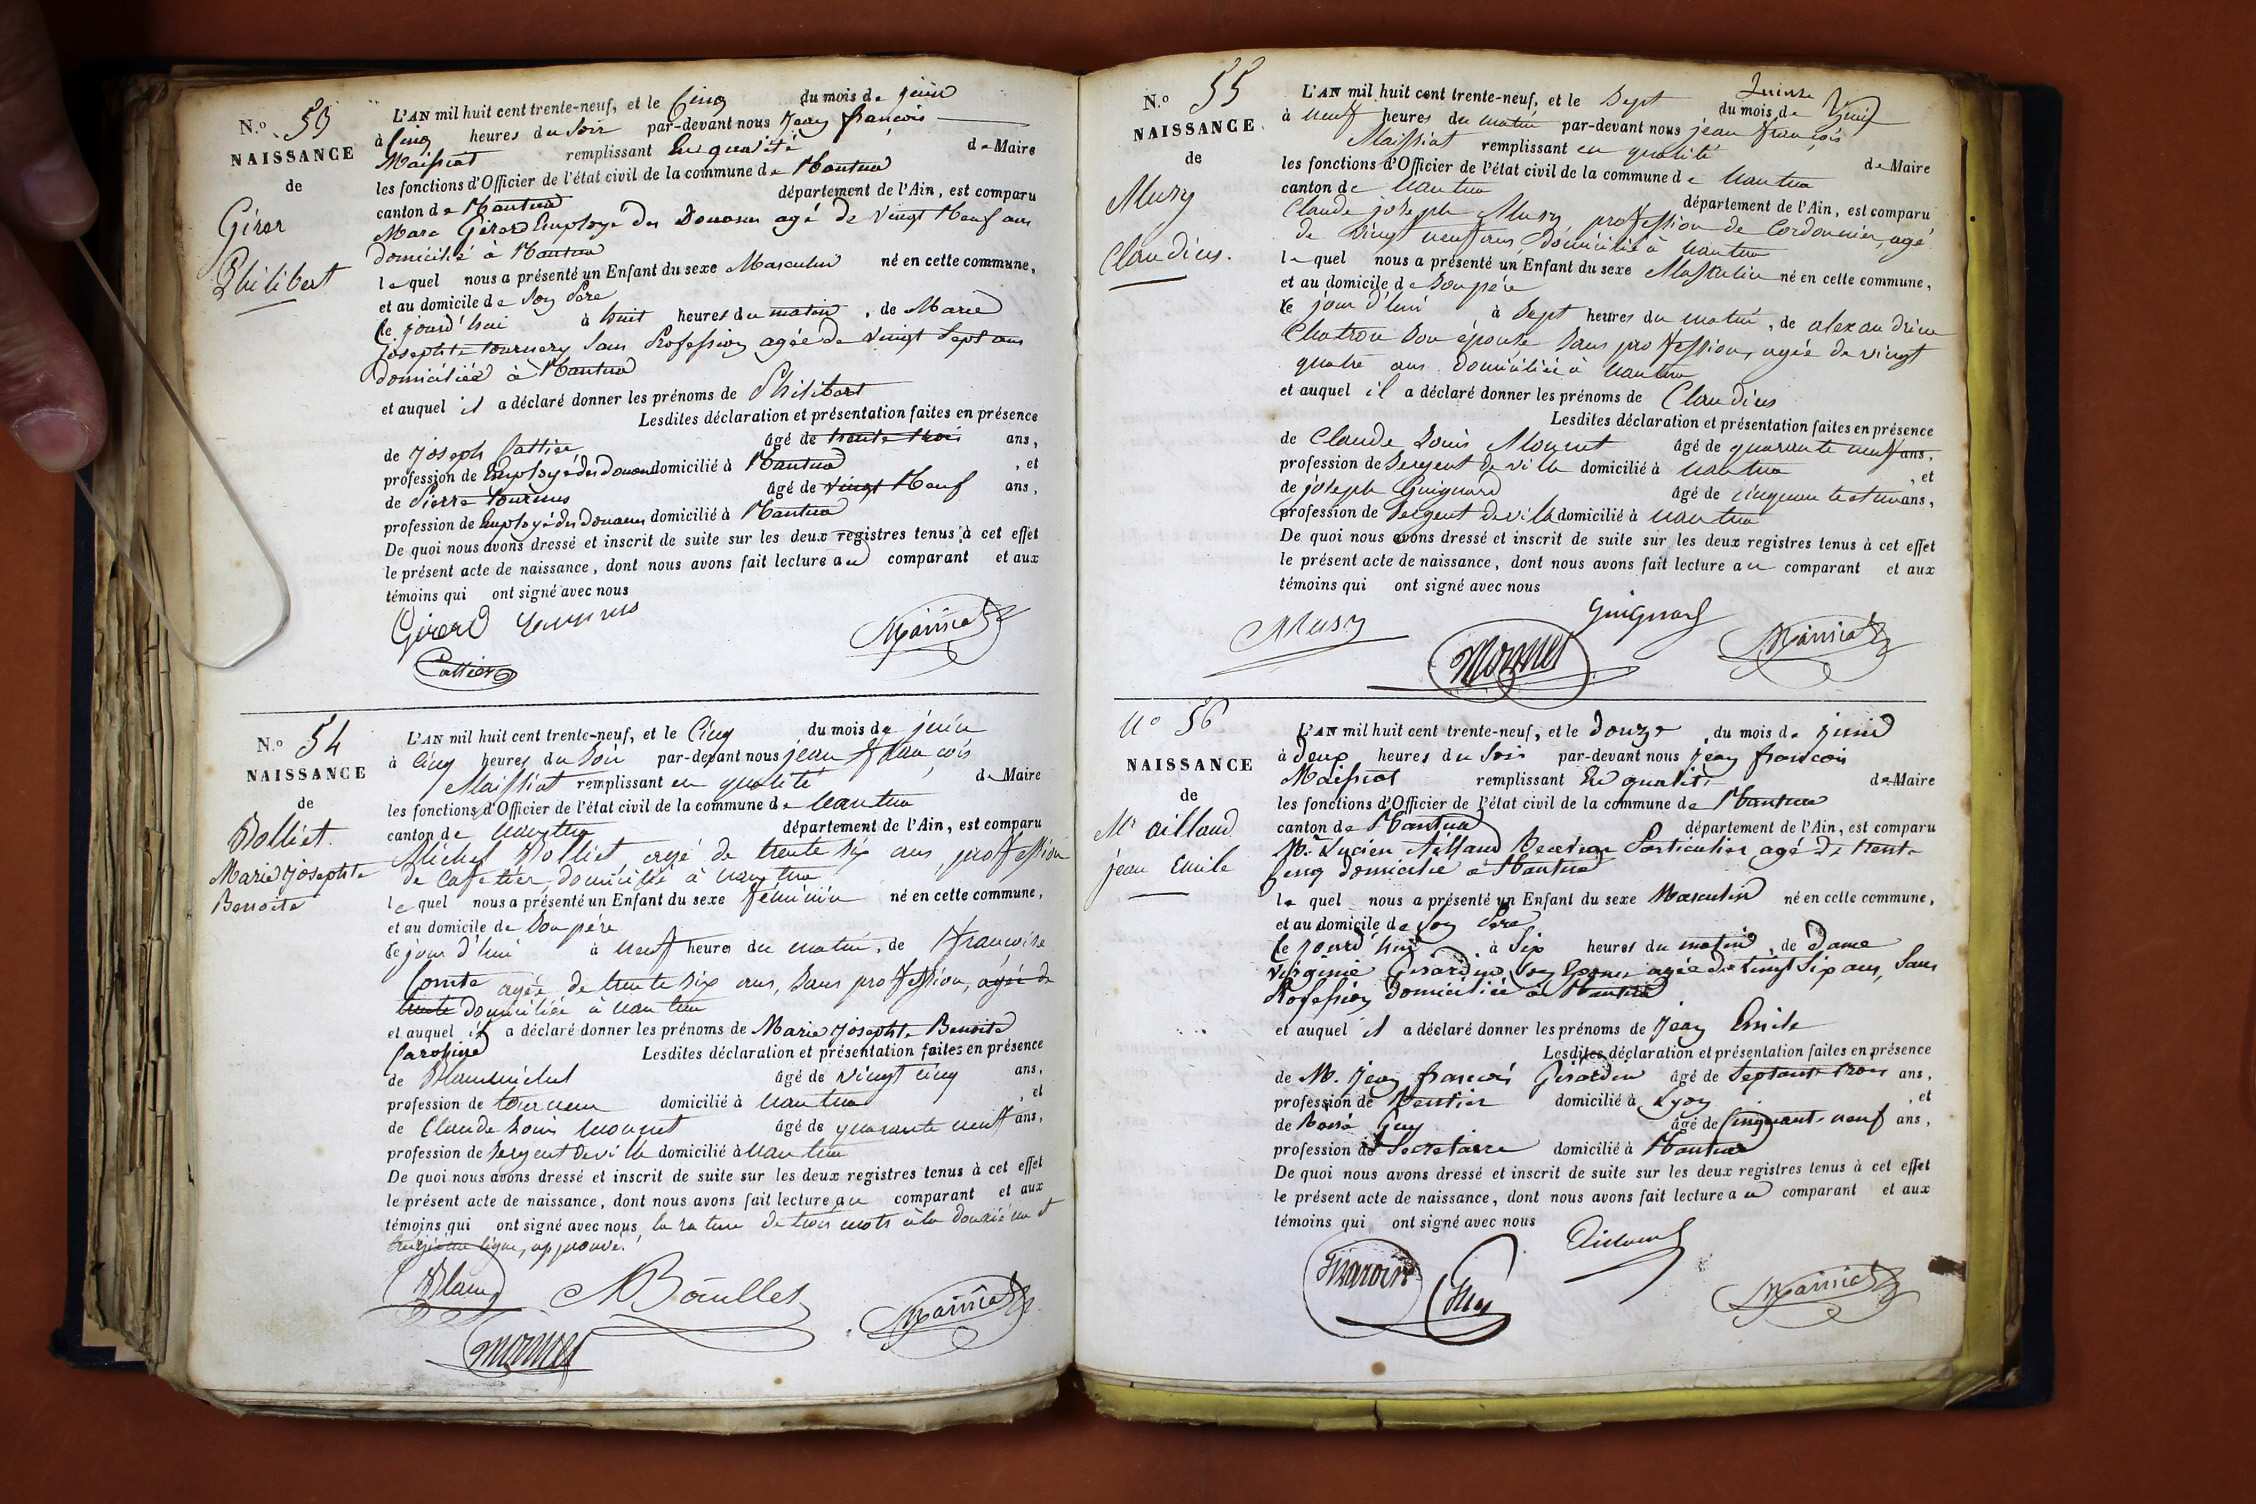 N.º 53
NAISSANCE
de
Girar
Philibert
L'AN mil huit cent trente-neuf, et le Cinq du mois de juin
à Cinq heures du Soir par-devant nous Jean françois
Maissiat remplissant En qualité de Maire
les fonctions d'Officier de l'état civil de la commune de Nantua
canton de Nantua département de l'Ain, est comparu
Marc Girard Employé des Douanes agé de vingt Neuf ans
domicilié à Nantua
le quel nous a présenté un Enfant du sexe Masculin né en cette commune,
et au domicile de Son Père
le jourd'hui à huit heures du matin, de Marie
Josephte tournery Sans Profession agée de vingt Sept ans
domiciliée à Nantua
et auquel il a déclaré donner les prénoms de Philibert
Lesdites déclaration et présentation faites en présence
de Joseph Cattier âgé de trente trois ans,
profession de Employé des douanes domicilié à Nantua, et
de Pierre tournus âgé de vingt Neuf ans,
profession de Employé des douanes domicilié à Nantua
De quoi nous avons dressé et inscrit de suite sur les deux registres tenus à cet effet
le présent acte de naissance, dont nous avons fait lecture au comparant et aux
témoins qui ont signé avec nous
Girard tournus Maissiat
Cattier
N.º 54
NAISSANCE
de
Bolliet.
Marie Josephte
Benoite
L'AN mil huit cent trente-neuf, et le Cinq du mois de juin
à Cinq heures du Soir par-devant nous jean françois
Maissiat remplissant en qualité de Maire
les fonctions d'Officier de l'état civil de la commune de nantua
canton de nantua département de l'Ain, est comparu
Michel Bolliet agé de trente six ans, proffession
de cafetier, domicilié à nantua
le quel nous a présenté un Enfant du sexe féminin né en cette commune,
et au domicile de Son père
le jour d'hui à neuf heures du matin, de françoise
Comte agée de trente six ans, sans proffession, agée de
trente domiciliée à nantua
et auquel il a déclaré donner les prénoms de Marie Josephte Benoite
Caroline Lesdites déclaration et présentation faites en présence
de âgé de vingt cinq ans,
profession de tourneur domicilié à nantua, et
de Claude Louis mournet âgé de quarante neuf ans,
profession de Sergent de ville domicilié à nantua
De quoi nous avons dressé et inscrit de suite sur les deux registres tenus à cet effet
le présent acte de naissance, dont nous avons fait lecture au comparant et aux
témoins qui ont signé avec nous, la rature de trois mots à la douzième et
treizième ligne, approuvé.
Maissiat
N.º 55
NAISSANCE
de
Musy
Claudius.
L'AN mil huit cent trente-neuf, et le Sept du mois de Juin
à neuf heures du matin par-devant nous jean françois
Maissiat remplissant en qualité de Maire
les fonctions d'Officier de l'état civil de la commune de nantua
canton de nantua département de l'Ain, est comparu
Claude joseph Musy proffession de Cordonnier, agé
de vingt neuf ans domicilié à nantua
le quel nous a présenté un Enfant du sexe Masculin né en cette commune,
et au domicile de Son père
le jour d'hui à Sept heures du matin, de alexandrine
Chatron Son épouse sans proffession, agée de vingt
quatre ans domiciliée à nantua
et auquel il a déclaré donner les prénoms de Claudius
Lesdites déclaration et présentation faites en présence
de Claude Louis Mournet âgé de quarante neuf ans,
profession de Sergent de ville domicilié à nantua, et
de joseph Guignard âgé de cinquante et un ans,
profession de Sergent de ville domicilié à nantua
De quoi nous avons dressé et inscrit de suite sur les deux registres tenus à cet effet
le présent acte de naissance, dont nous avons fait lecture au comparant et aux
témoins qui ont signé avec nous
Musy Guignard Maissiat
Mournet
Nº 56
NAISSANCE
de
Mr aillaud
jean Emile
L'AN mil huit cent trente-neuf, et le douze du mois de juin
à deux heures du Soir par-devant nous Jean françois
Maissiat remplissant En qualité de Maire
les fonctions d'Officier de l'état civil de la commune de Nantua
canton de Nantua département de l'Ain, est comparu
Mr. Lucien Aillaud Receveur Particulier agé de trente
Cinq domicilié à Nantua
le quel nous a présenté un Enfant du sexe Masculin né en cette commune,
et au domicile de Son Père
le jourd'hui à Six heures du matin, de Dame
Virginie Girardin Son Epouse agée de vingt Six ans, Sans
Profession domiciliée à Nantua
et auquel il a déclaré donner les prénoms de Jean Emile
Lesdites déclaration et présentation faites en présence
de M. Jean françois Girardin âgé de Septante trois ans,
profession de Rentier domicilié à Lyon, et
de Guy âgé de Cinquante neuf ans,
profession de Secretaire domicilié à Nantua
De quoi nous avons dressé et inscrit de suite sur les deux registres tenus à cet effet
le présent acte de naissance, dont nous avons fait lecture au comparant et aux
témoins qui ont signé avec nous
Aillaud
Girardin Guy Maissiat